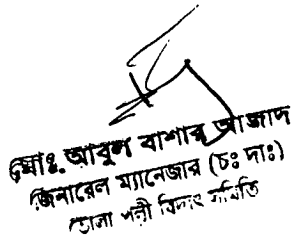 মোঃ আবুল বাশার আজাদ
জেনারেল ম্যানেজার (চঃ দাঃ)
ভোলা পল্লী বিদ্যুৎ সমিতি